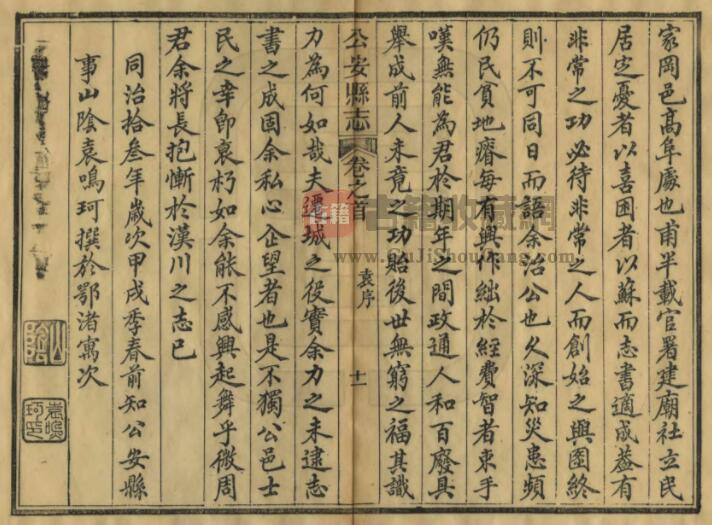 家岡邑高阜處也甫半載官署建廟社立民
居定憂者以喜困者以蘇而志書適成蓋有
非常之功必待非常之人而創始之興圖終
則不可同日而語余治公也久深知災患頻
仍民貧地瘠每有興作絀於經費智者束手
嘆無能為君於期年之間政通人和百廢具
舉成前人未竟之功貽後世無窮之福其識
公安縣志 卷之首 袁序 十一
力為何如哉夫遷城之役實余力之未逮志
書之成固余私心企望者也是不獨公邑士
民之幸即衰朽如余能不感興起舞乎微周
君余將長抱慚於漢川之志已
同治拾叁年歲次甲戌季春前知公安縣
事山陰袁鳴珂撰於鄂渚寓次
山陰
袁鳴珂印
古籍
古籍收藏网
www.GuJiShouCang.com